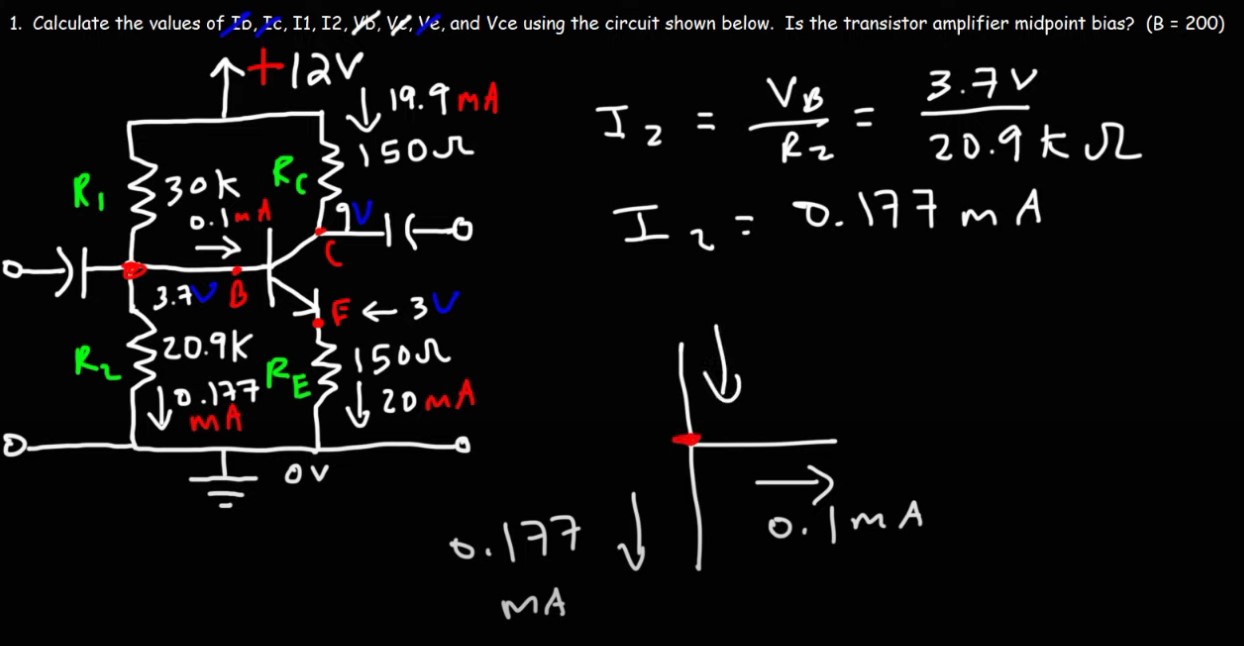 1. Calculate the values of Ib, Ic, I1, I2, Vb, Vc, Ve, and Vce using the circuit shown below. Is the transistor amplifier midpoint bias? (B = 200)
+12V
19.9 mA
150Ω
R1
30k
RC
0.1mA
9V
C
3.7V
B
E ← 3V
R2
20.9K
RE
150Ω
0.177
mA
20mA
0V
I2 = VB / R2 = 3.7V / 20.9kΩ
I2 = 0.177mA
0.1mA
0.177
mA